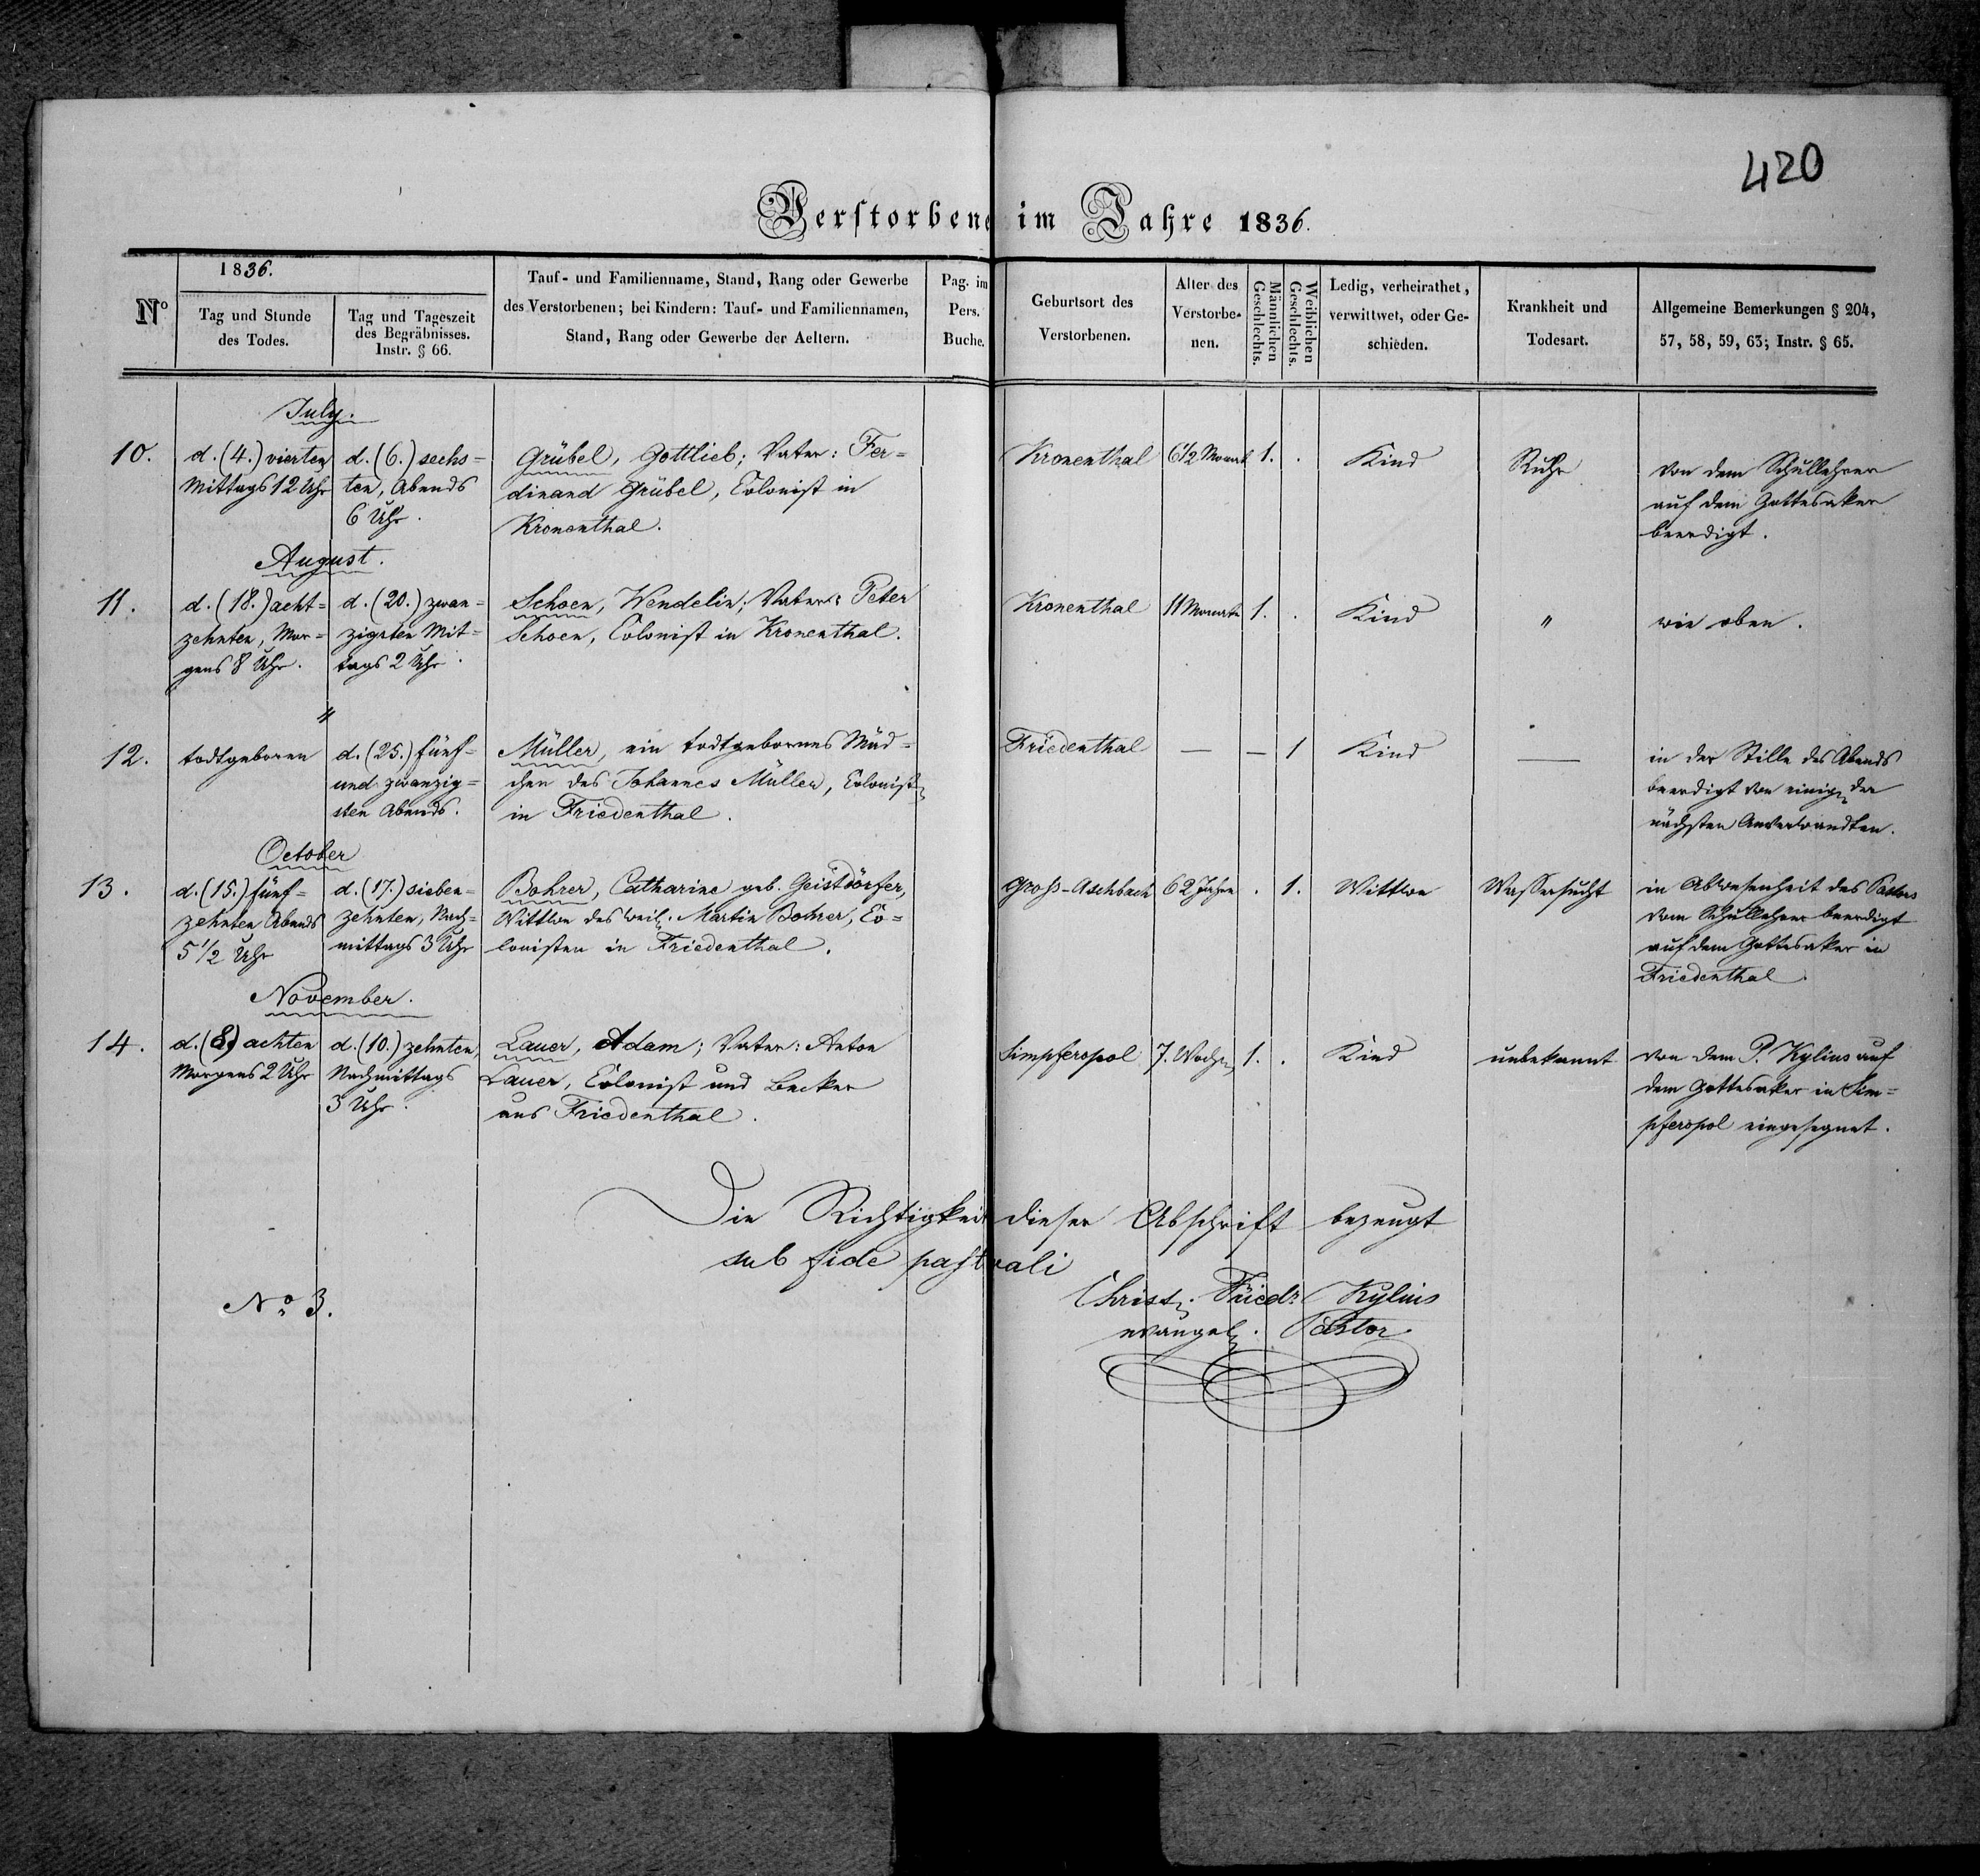 420
Verstorbene im Jahre 1836.
No
1836.
Tag und Stunde
des Todes.
Tag und Tageszeit
des Begräbnisses.
Instr. § 66.
Tauf- und Familienname, Stand, Rang oder Gewerbe
des Verstorbenen; bei Kindern: Tauf- und Familiennamen,
Stand, Rang oder Gewerbe der Aeltern.
Pag. im
Pers.
Buche.
Geburtsort des
Verstorbenen.
Alter des
Verstorbe-
nen.
Männlichen
Geschlechts.
Weiblichen
Geschlechts.
Ledig, verheirathet,
verwittwet, oder Ge-
schieden.
Krankheit und
Todesart.
Allgemeine Bemerkungen § 204,
57, 58, 59, 63; Instr. § 65.
July.
10.
d. (4.) vierten
Mittags 12 Uhr
d. (6.) sechs=
ten, Abends
6 Uhr.
Grübel, Gottlieb; Vater: Fer=
dinand Grübel, Colonist in
Kronenthal.
Kronenthal
6 1/2 Monat
1.
.
Kind
Ruhr
Von dem Schullehrer
auf dem Gottesaker
beerdigt.
August.
11.
d. (18.) acht=
zehnten, Mor=
gens 8 Uhr.
d. (20.) zwan=
zigsten Mit=
tags 2 Uhr.
Schoen, Wendelin; Vater: Peter
Schoen, Colonist in Kronenthal.
Kronenthal
11 Monate
1.
.
Kind
"
wie oben.
"
12.
todtgeboren
d. (25.) fünf=
und zwanzig=
sten Abends.
Müller, ein todtgebornes Mäd=
chen des Johannes Müller, Colonist
in Friedenthal.
Friedenthal
—
—
1
Kind
—
in der Stille des Abends
beerdigt von einigen der
nächsten Anverwandten.
October
13.
d. (15.) fünf=
zehnten Abends
5 1/2 Uhr
d. (17.) sieben=
zehnten, Nach=
mittags 3 Uhr
Bohrer, Catharine geb. Geistdörfer,
Wittwe des weil. Martin Bohrer, Co=
lonisten in Friedenthal.
Groß-Aschbach
62 Jahre
.
1.
Wittwe
Wassersucht
in Abwesenheit des Pastors
vom Schullehrer beerdigt
auf dem Gottesaker in
Friedenthal.
November.
14.
d. (8.) achten
Morgens 2 Uhr
d. (10.) zehnten,
Nachmittags
3 Uhr.
Lauer, Adam; Vater: Anton
Lauer, Colonist und Becker
aus Friedenthal.
Simpferopol
7. Wochen
1.
.
Kind
unbekannt
von dem P. Kylius auf
dem Gottesaker in Sim=
pferopol eingesegnet.
Die Richtigkeit dieser Abschrift bezeugt
sub fide pastorali
No 3.
Christ. Friedr. Kylius
evangel. Pastor